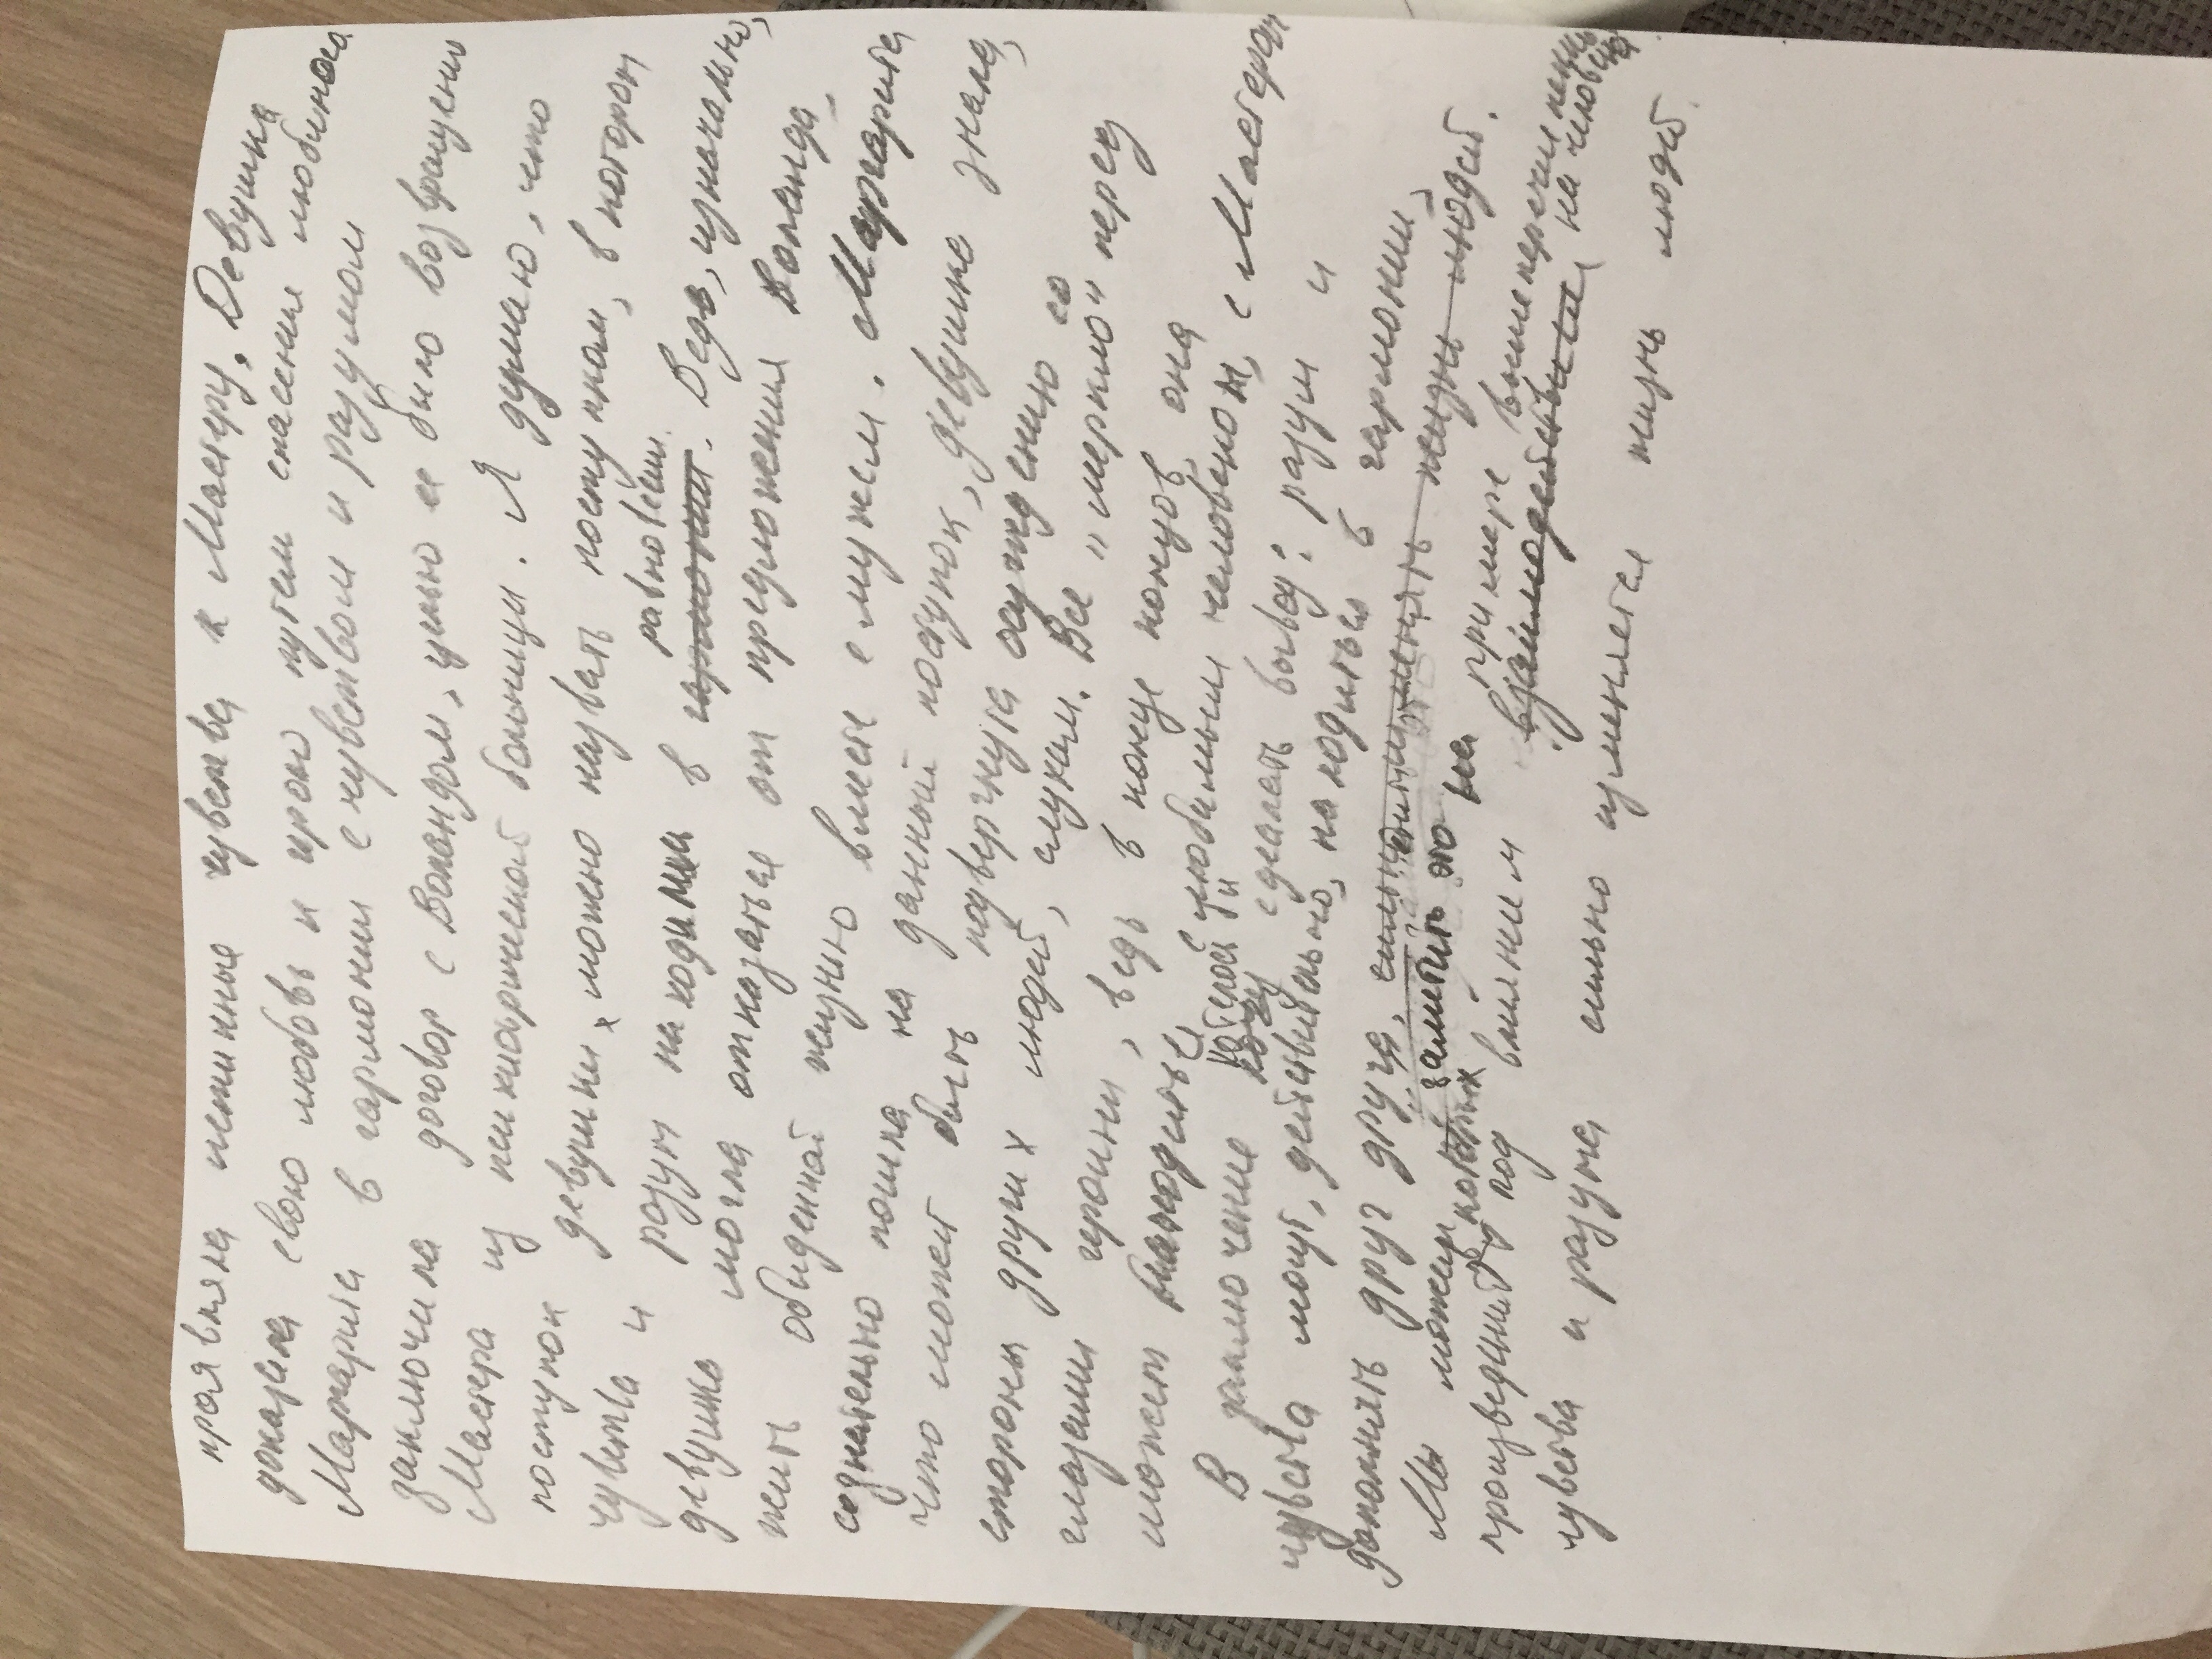 проявляла истинные чувства к Мастеру. Девушка
доказала свою любовь к герою путем спасения любимого.
Маргарита в гармонии с чувством и разумом
заключила договор с Воландом, целью ее было возвращение
Мастера из психиатрической больницы. Я думаю, что
поступок девушки, можно назвать поступком, в котором
равновесии.
чувства и разум находились в гармонии. Ведь, изначально,
девушка могла отказаться от предложения Воланда,
жить обыденной жизнью вместе с мужем. Маргарита
сознательно пошла на данный поступок, девушка знала,
что может быть подвергнута осуждению со
стороны других людей, слухам. Все "меркло" перед
глазами героини, ведь в конце концов, она
может находиться с любимым человеком, с Мастером
хотелось бы
В заключение хочу сделать вывод: разум и
чувства могут, действительно, находиться в гармонии,
дополнять друг друга, сильно изменять жизнь людей.
Мы можем заметить это на примере вышеперечисленных
произведений, в которых под влиянием взаимодействием на человека
чувства и разума сильно изменяется жизнь людей.